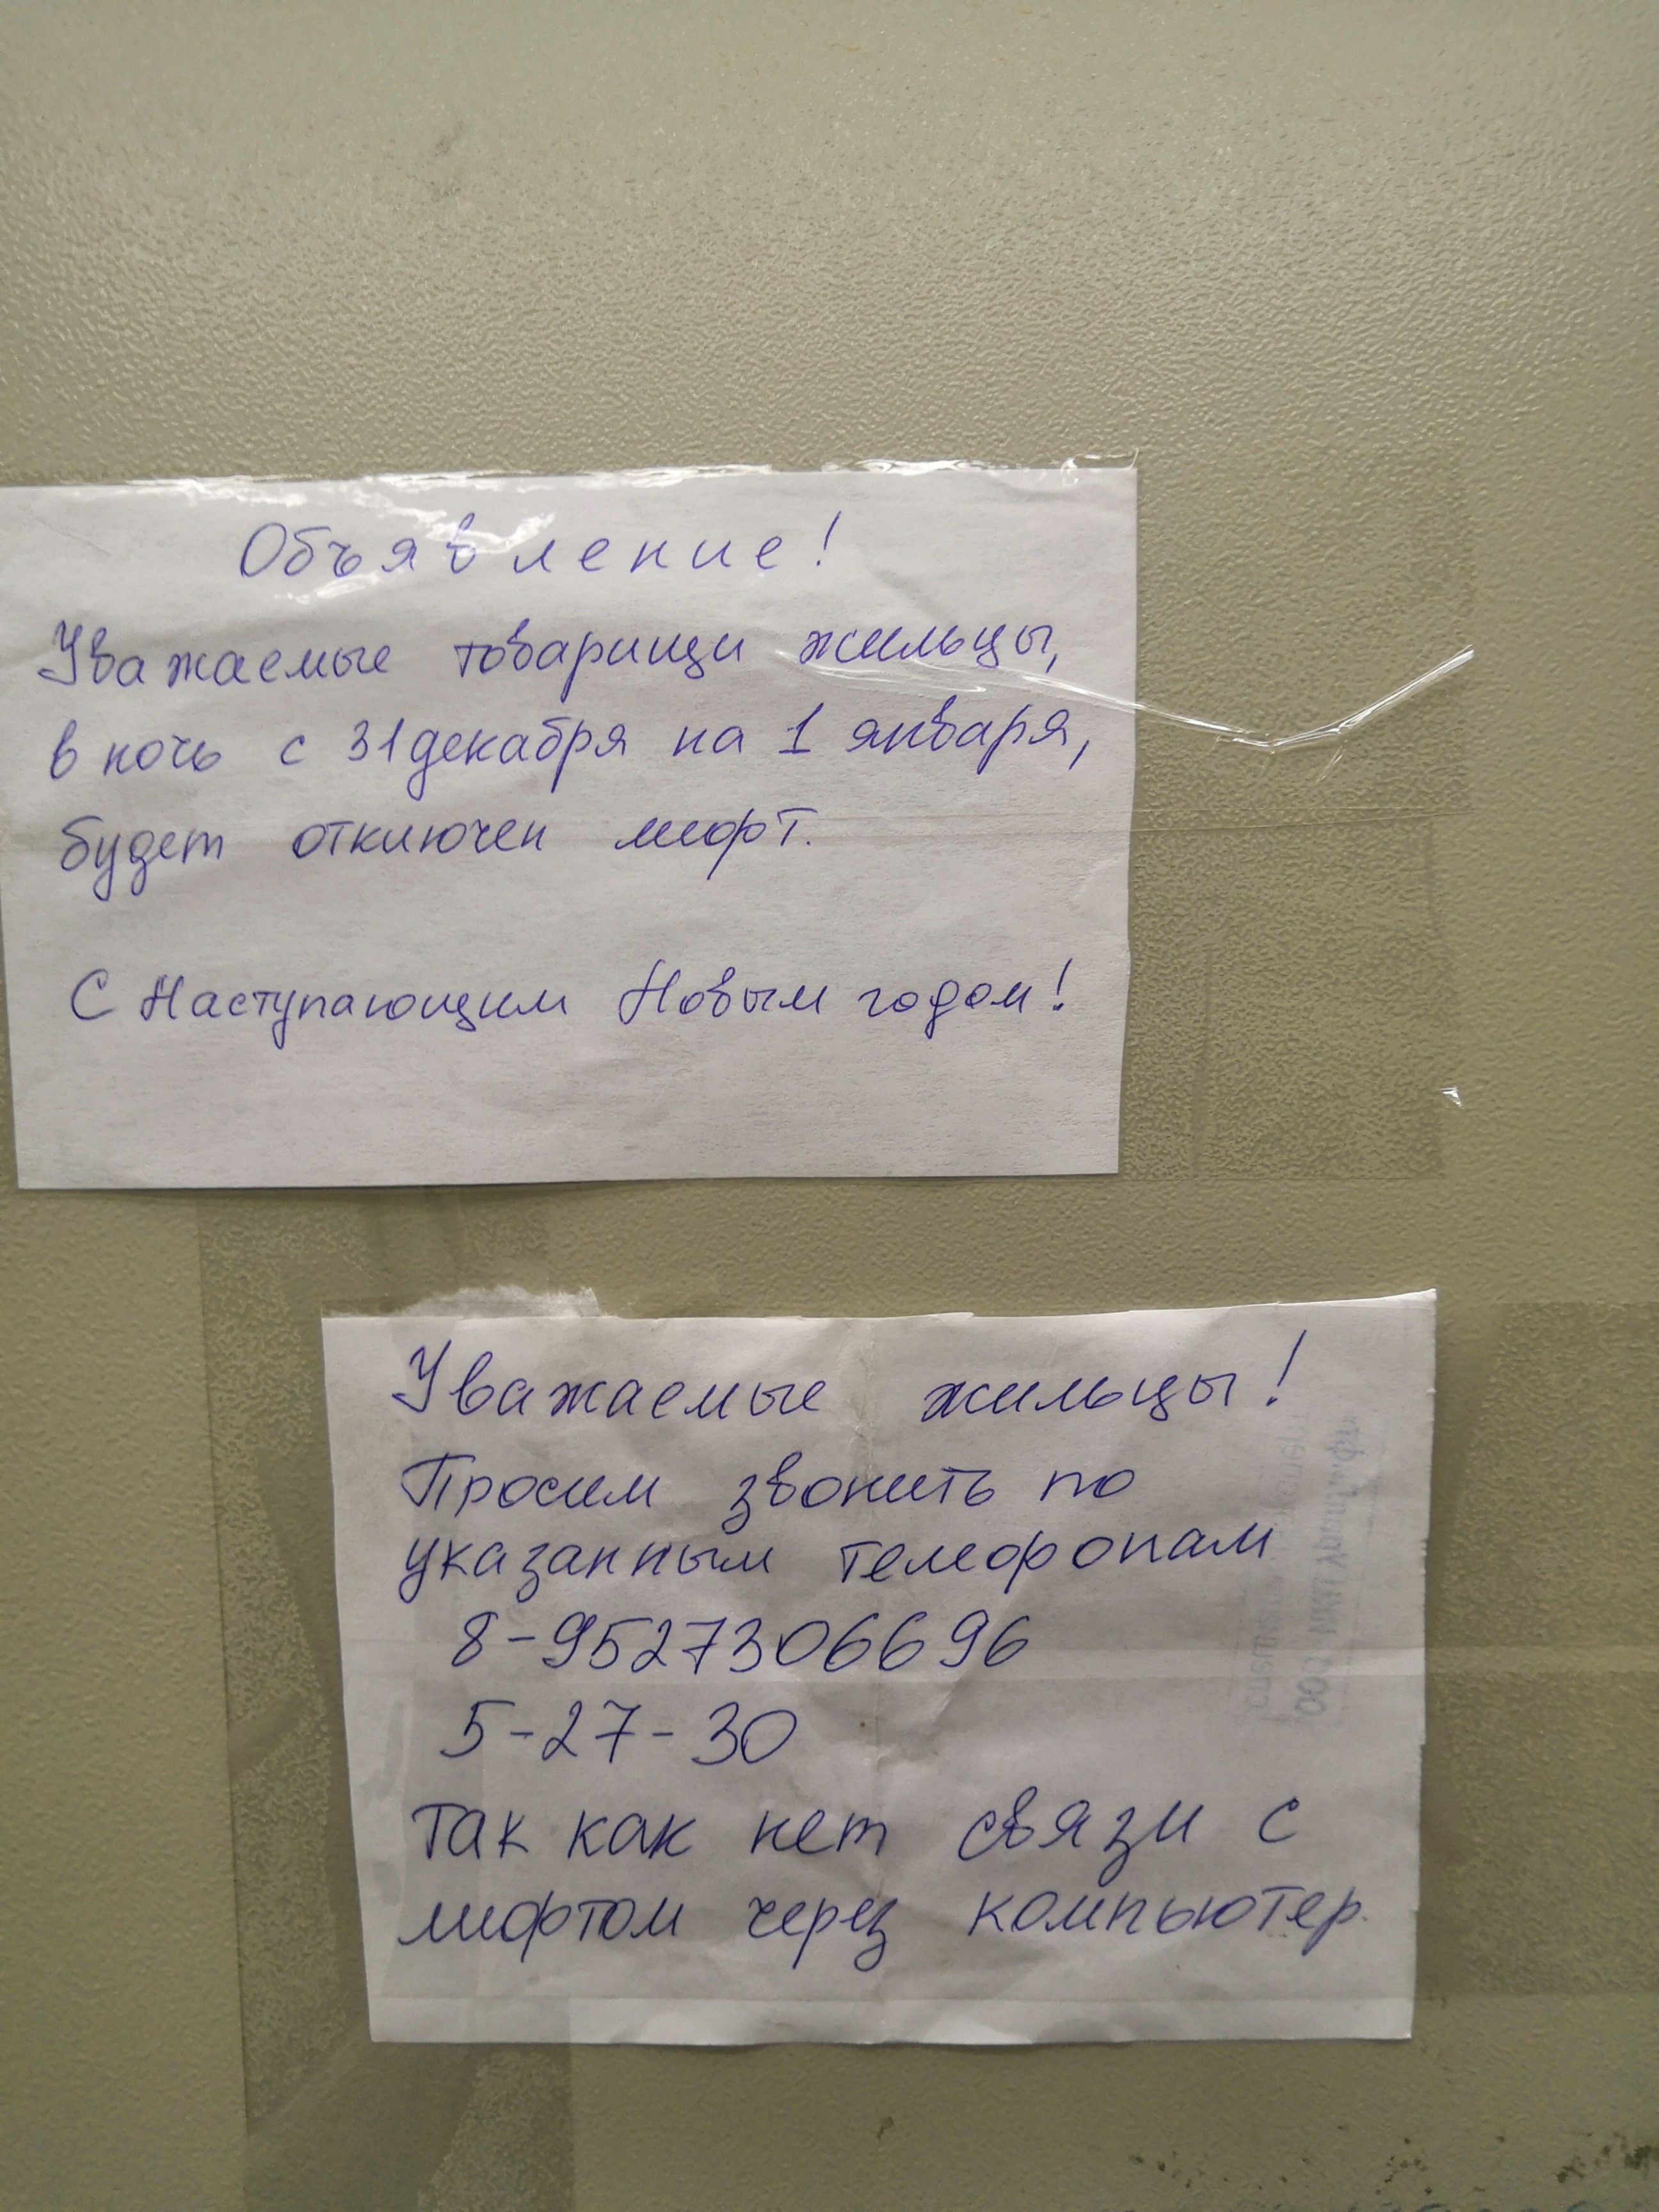 Объявление!
Уважаемые товарищи жильцы,
в ночь с 31 декабря на 1 января,
будет отключен лифт.
С Наступающим Новым годом!
Уважаемые жильцы!
Просим звонить по
указанным телефонам
8-9527306696
5-27-30
Так как нет связи с
лифтом через компьютер.